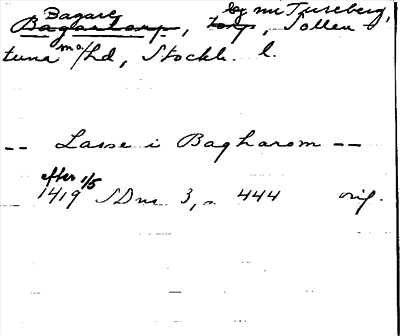 Bagare
Bagartorp, torp, Sollen
tuna sn o hd, Stockh. l.
-- Lasse i Bagharom --
efter 1/5
1419 SDns 3, s. 444 orig.